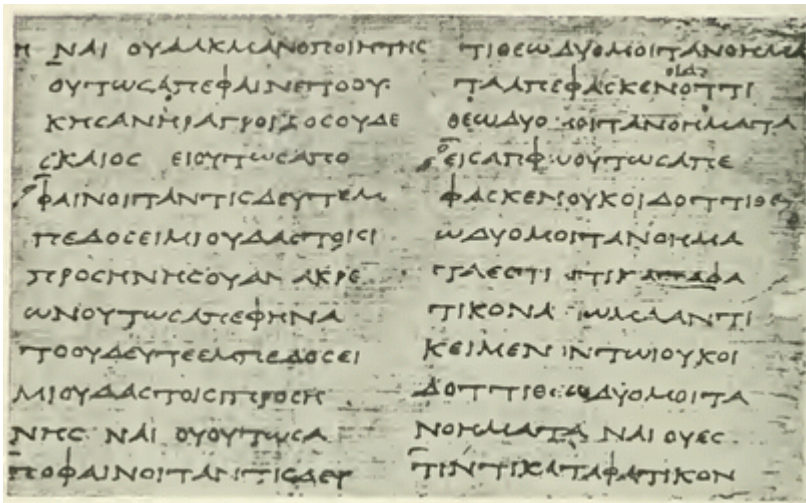 Η ΝΑΙ ΟΥ ΑΛΚΜΑΝ Ο ΠΟΙΗΤΗС
ΟΥΤΩС ΑΠΕΦΑΙΝΕΤΟ ΟΥ
ΚΗС ΑΝΗΡ ΑΓΡΟΙΚΟС ΟΥΔΕ
СΚΑΙΟС ΕΙ ΟΥΤΩС ΑΠΟ
ΦΑΙΝΟΙΤ ΑΝ ΤΙС ΔΕΥΤ ΕΜ
ΠΕΔΟС ΕΙΜΙ ΟΥΔ ΑСΤΟΙСΙ
ΠΡΟСΗΝΗС ΟΥ ΑΝΑΚΡΕ
ΩΝ ΟΥΤΩС ΑΠΕΦΗΝΑ
ΤΟ ΟΥ ΔΕΥΤΕ ΕΜΠΕΔΟС ΕΙ
ΜΙ ΟΥΔ ΑСΤΟΙС ΠΡΟСΗ
ΝΗС ΝΑΙ ΟΥ ΟΥΤΩС Α
ΠΟΦΑΙΝΟΙΤ ΑΝ ΤΙС ΔΕΥ
ΤΙ ΘΕΩ ΔΥΟ ΜΟΙ ΤΑ ΝΟΗΜΑ
ΤΑ ΑΠΕΦΑСΚΕΝ ΟΤΤΙ
ΘΕΩ ΔΥΟ ΜΟΙ ΤΑ ΝΟΗΜΑΤΑ
ΕΙ СΑΠΦ ΟΥΤΩС ΑΠΕ
ΦΑСΚΕΝ ΟΥΚ ΟΙΔ ΟΤΤΙ ΘΕ
Ω ΔΥΟ ΜΟΙ ΤΑ ΝΟΗΜΑ
ΤΑ ΕСΤΙ ΤΙ ΚΑΤΑΦΑ
ΤΙΚΟΝ ΑΝΤΙ
ΚΕΙΜΕΝ ΤΩΙ ΟΥΚ ΟΙ
Δ ΟΤΤΙ ΘΕΩ ΔΥΟ ΜΟΙ ΤΑ
ΝΟΗΜΑΤΑ ΝΑΙ ΟΥ ΕС
ΤΙΝ ΤΙ ΚΑΤΑΦΑΤΙΚΟΝ